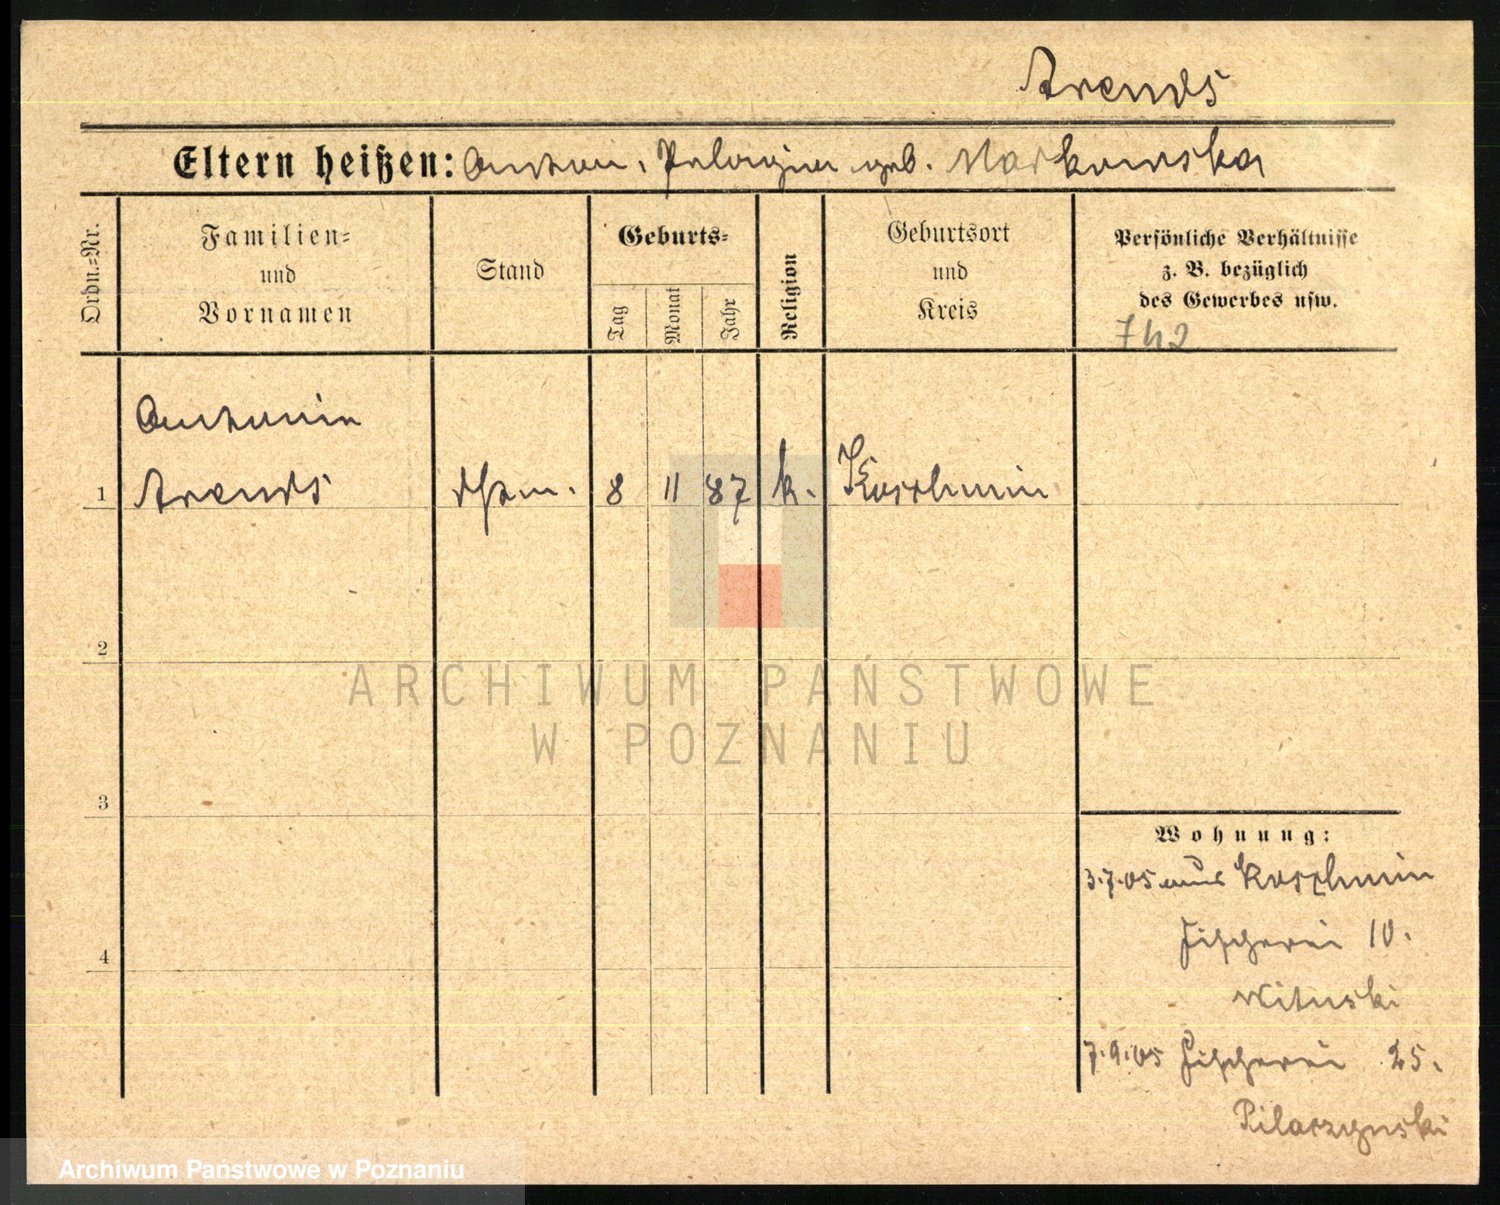 Arends
Eltern heißen: Anton, Pelagia geb. Markowska
Ordn.=Nr.
Familien=
und
Vornamen
Stand
Geburts=
Tag
Monat
Jahr
Religion
Geburtsort
und
Kreis
Persönliche Verhältnisse
z. B. bezüglich
des Gewerbes usw.
742
Antonin
1 Arends 8 11 87 k. Koschmin
2
3
4
Wohnung:
3.7.05 aus Koschmin
Fischerei 10.
Wituski
7.9.05 Fischerei 25.
Pilaczynski
ARCHIWUM PAŃSTWOWE
W POZNANIU
Archiwum Państwowe w Poznaniu